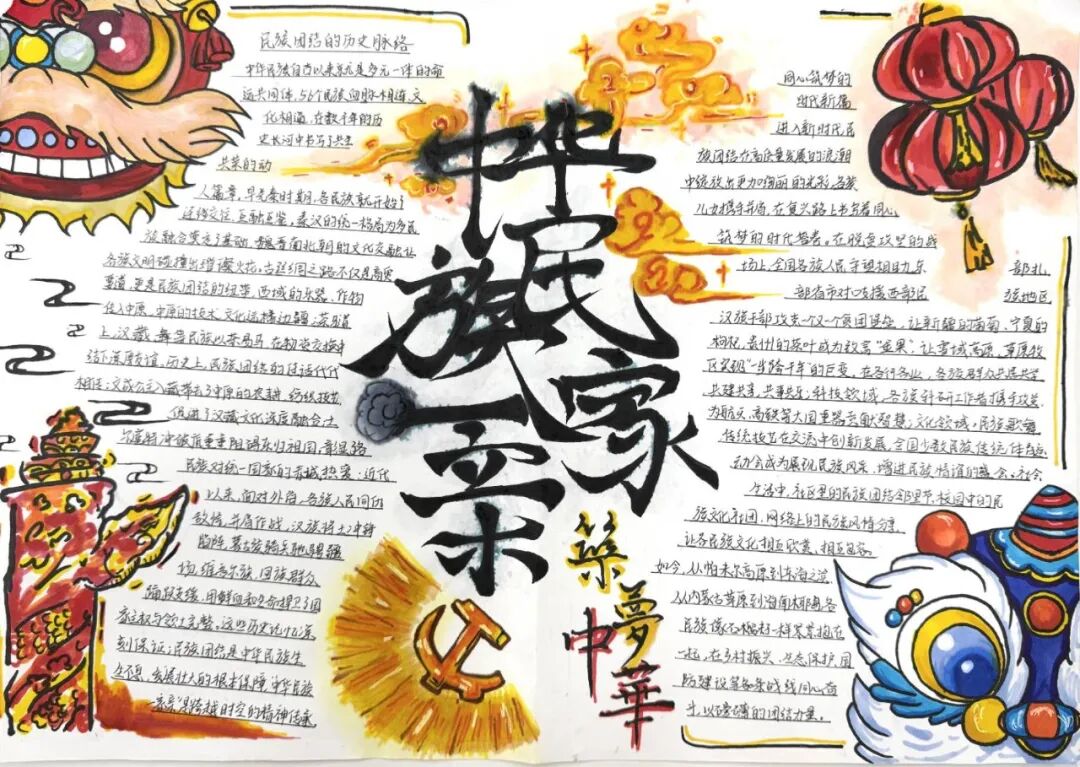 民族团结的历史脉络
中华民族自古以来就是多元一体的命
运共同体，56个民族血脉相连、文
化相通，在数千年的历
史长河中书写了共生
共荣的动
人篇章。早先秦时期，各民族就开始了
迁徙交往、互鉴，秦汉的统一格局为多民
族融合奠定了基础，魏晋南北朝的文化交融让
各族文明碰撞出璀璨火花。古丝绸之路不仅是商贸
要道，更是民族团结的纽带，西域的乐器、作物
传入中原，中原的技术、文化远播边疆；茶马道
上，汉藏、等民族以茶易马，在物资交换中
结下深厚友谊。历史上，民族团结的佳话代代
相传：文成公主入藏带去了中原的农耕、纺织技艺
促进了汉藏文化深度融合；土
尔扈特冲破重重阻碍东归祖国，彰显各
民族对统一国家的赤诚热爱；近代
以来，面对外侮，各族人民同仇
敌忾、并肩作战，汉族将士冲锋
陷阵，蒙古族骑兵驰骋疆
场，维吾尔族、回族群众
踊跃支援，用鲜血和生命捍卫了国
家主权与领土完整。这些历史记忆深
刻保证：民族团结是中华民族生
生不息、发展壮大的根本保障，中华民族
一家亲是跨越时空的精神传承
中华
民族
一家
亲
筑夢
中華
同心筑梦的
时代新篇
进入新时代，民
族团结在高质量发展的浪潮
中绽放出更加绚丽的光彩，各族
儿女携手并肩，在复兴路上书写着同心
筑梦的时代答卷。在脱贫攻坚的战
场上，全国各族人民守望相助，东
部省市对口支援西部民
族地区
部扎
汉族干部攻克一个又一个贫困堡垒，让新疆的葡萄、宁夏的
枸杞、贵州的茶叶成为致富“金果”，让雪域高原、草原牧
区实现“一步跨千年”的巨变。在各行各业，各族群众共居共学、
共建共享、共事共乐：科技领域，各族科研工作者携手攻关，
为航天、高铁等大国重器贡献智慧；文化领域，民族歌舞、
传统技艺在交流中创新发展，全国少数民族传统体育运
动会成为展现民族风采、增进民族情谊的盛会；社会
生活中，社区里的民族团结邻里节、校园中的民
族文化社团、网络上的民族风情分享，
让各民族文化相互欣赏、相互包容。
如今，从帕米尔高原到东海之滨，
从内蒙古草原到海南椰岛，各
民族像石榴籽一样紧紧抱在
一起，在乡村振兴、生态保护、国
防建设等各条战线同心奋
斗，以磅礴的团结力量。